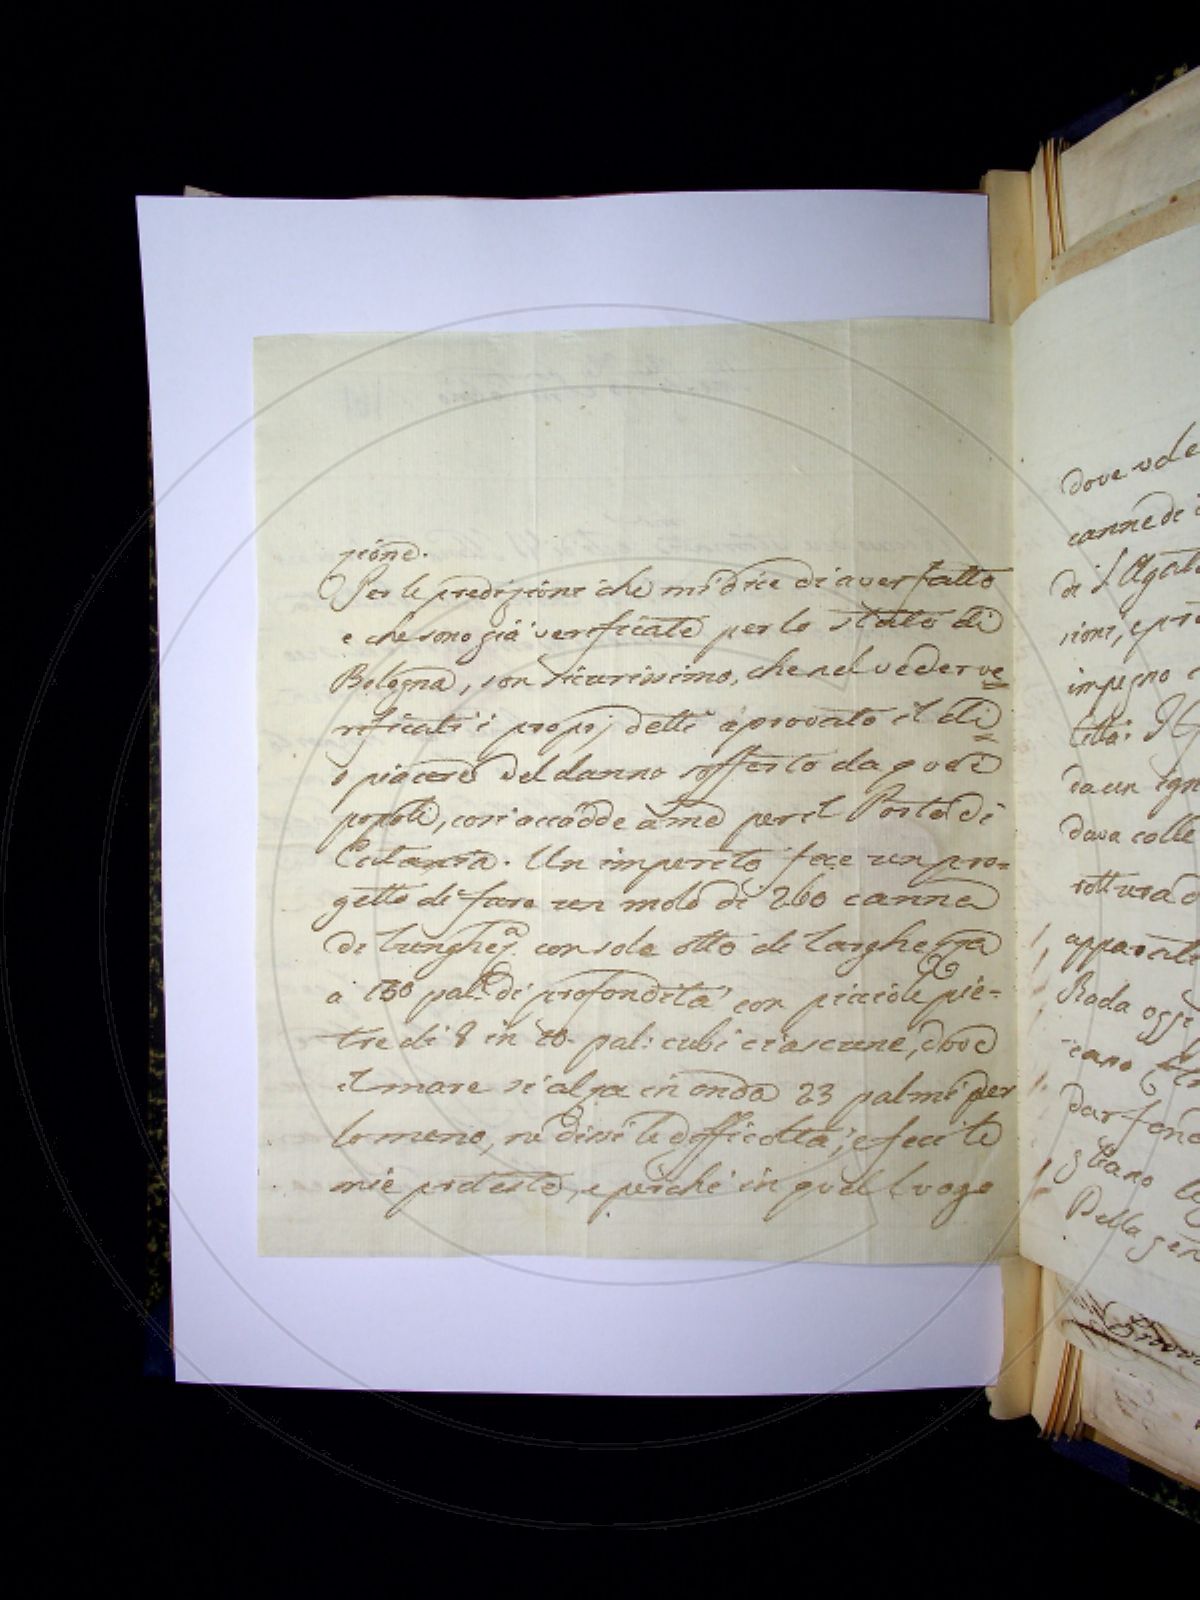 zione.
Per le predizioni che mi dice di aver fatto
e che sono già verificate per lo stato di
Bologna, son sicurissimo, che nel veder ve
rificati i propoj detti à provato il di
spiacere del danno sofferto da quei
popoli, così accadde à me per il Porto di
Catania. Un imperito fece un pro=
getto di fare un molo di 260 canne
di lunghez.a con sole otto di larghezza
a 130 pal.i di profondità con picciole pie=
tre di 8 in 10. pal: cubi ciascune, dove
il mare si alza in onda 23 palmi per
lo meno, ne dissi le difficoltà, e feci le
mie proteste, e perchè in quel luogo
dove vole
canne di
di S. Agata
sioni, e pre
impegno
Città:
da un ign
dava colle
rottura d
apparente
Rada oggi
cano
dar fond
gliano
Della gen